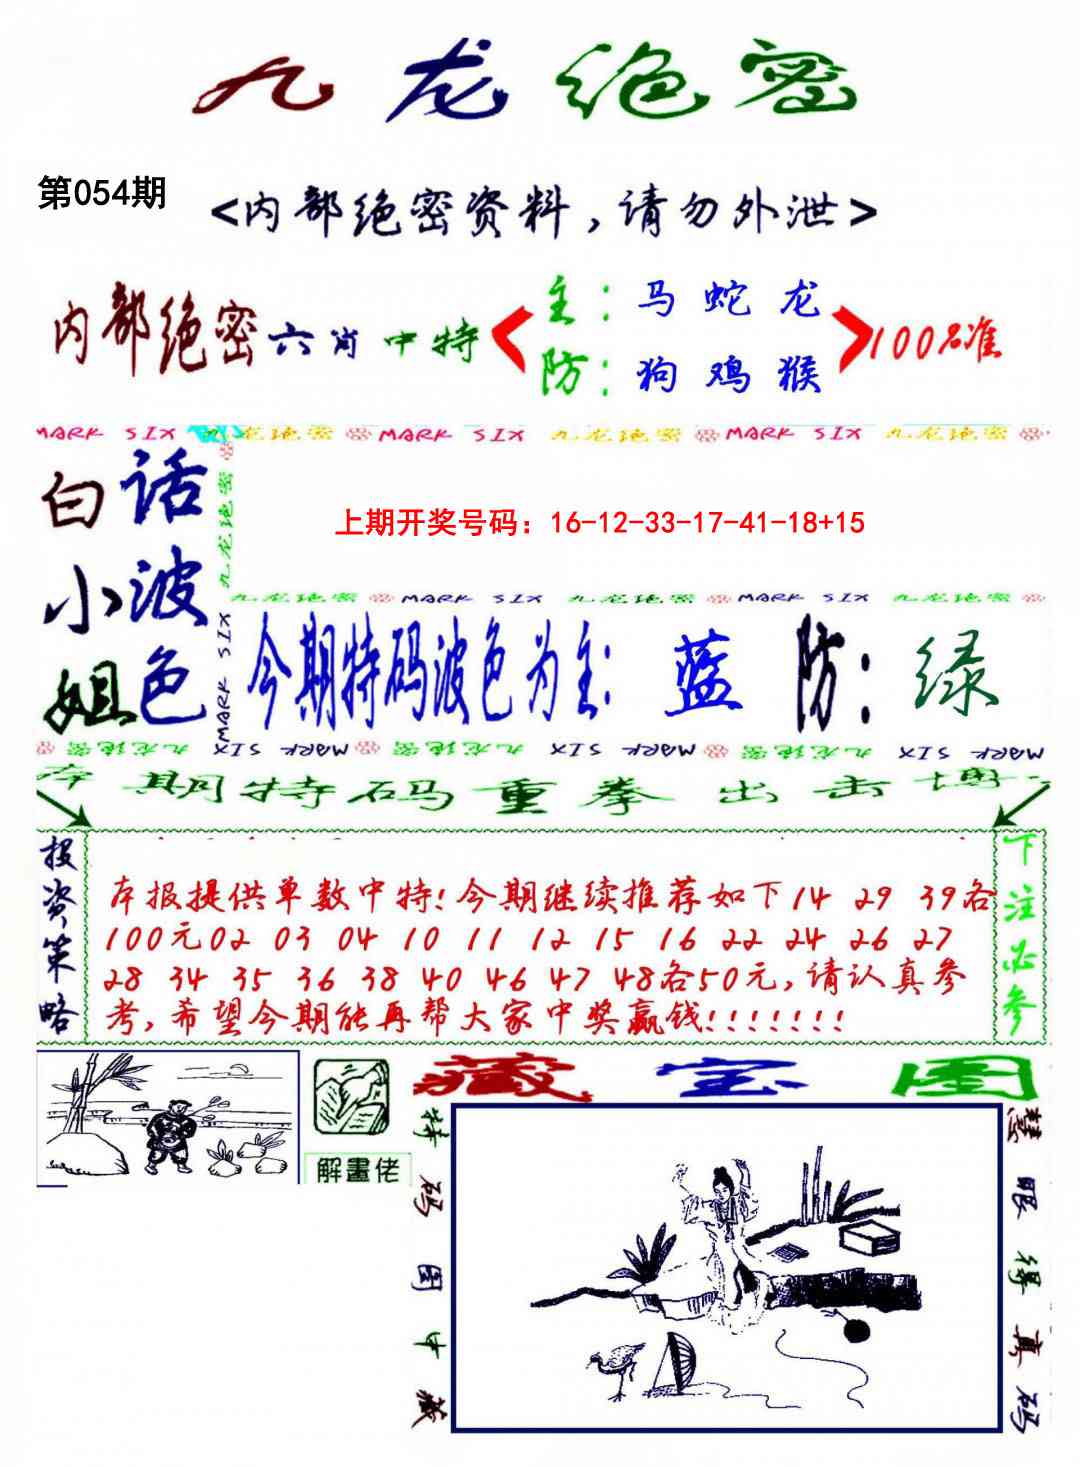 九龙绝密
第054期
<内部绝密资料,请勿外泄>
内部绝密六肖中特
主:马 蛇 龙
防:狗 鸡 猴
100%准
MARK SIX 九龙绝密 MARK SIX 九龙绝密 MARK SIX 九龙绝密
白话
小波
姐色
九龙绝密
MARK SIX
上期开奖号码：16-12-33-17-41-18+15
九龙绝密 MARK SIX 九龙绝密 MARK SIX 九龙绝密
今期特码波色为主: 蓝 防: 绿
九龙绝密 MARK SIX 九龙绝密 MARK SIX 九龙绝密 MARK SIX
本期特码重拳出击博
投资策略
本报提供单数中特!今期继续推荐如下14 29 39各
100元02 03 04 10 11 12 15 16 22 24 26 27
28 34 35 36 38 40 46 47 48各50元,请认真参
考,希望今期能再帮大家中奖赢钱!!!!!!!
下注必参
解畫佬
藏宝图
特码图中藏
慧眼得真码